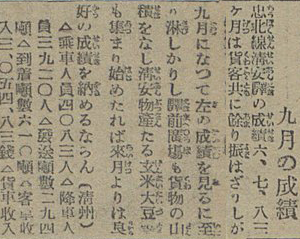 九月の成績
忠北線淸安驛の成績六、七、八三
ケ月は貨客共に餘り振はざりしが
九月になつて左の成績を見るに至
り淋しかりし驛前廣場も貨物の山
積をなし淸安物產たる玄米大豆等
も集まり始めたれば來月よりは良
好の成績を納めるならん（淸州）
△乘車人員四〇八三人△降車人
員三九二〇人△發送噸數二九四
噸△到着噸數六一〇噸△客車收
入二〇五四八三錢△貨車收入